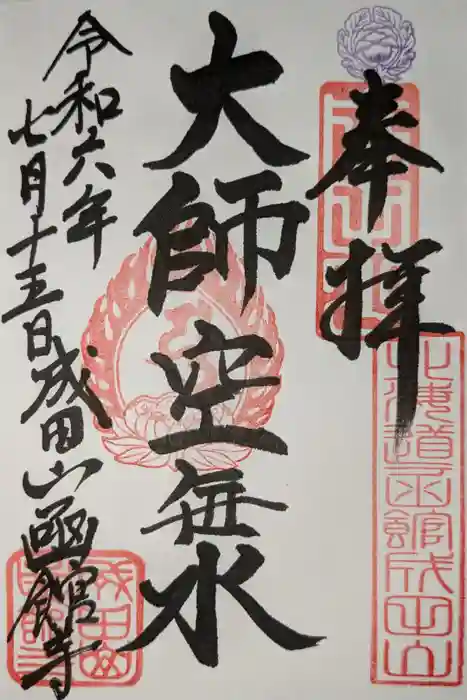 奉拝
大師空無水
令和六年
七月十五日成田山函館寺
北海道函館成田山
成田山